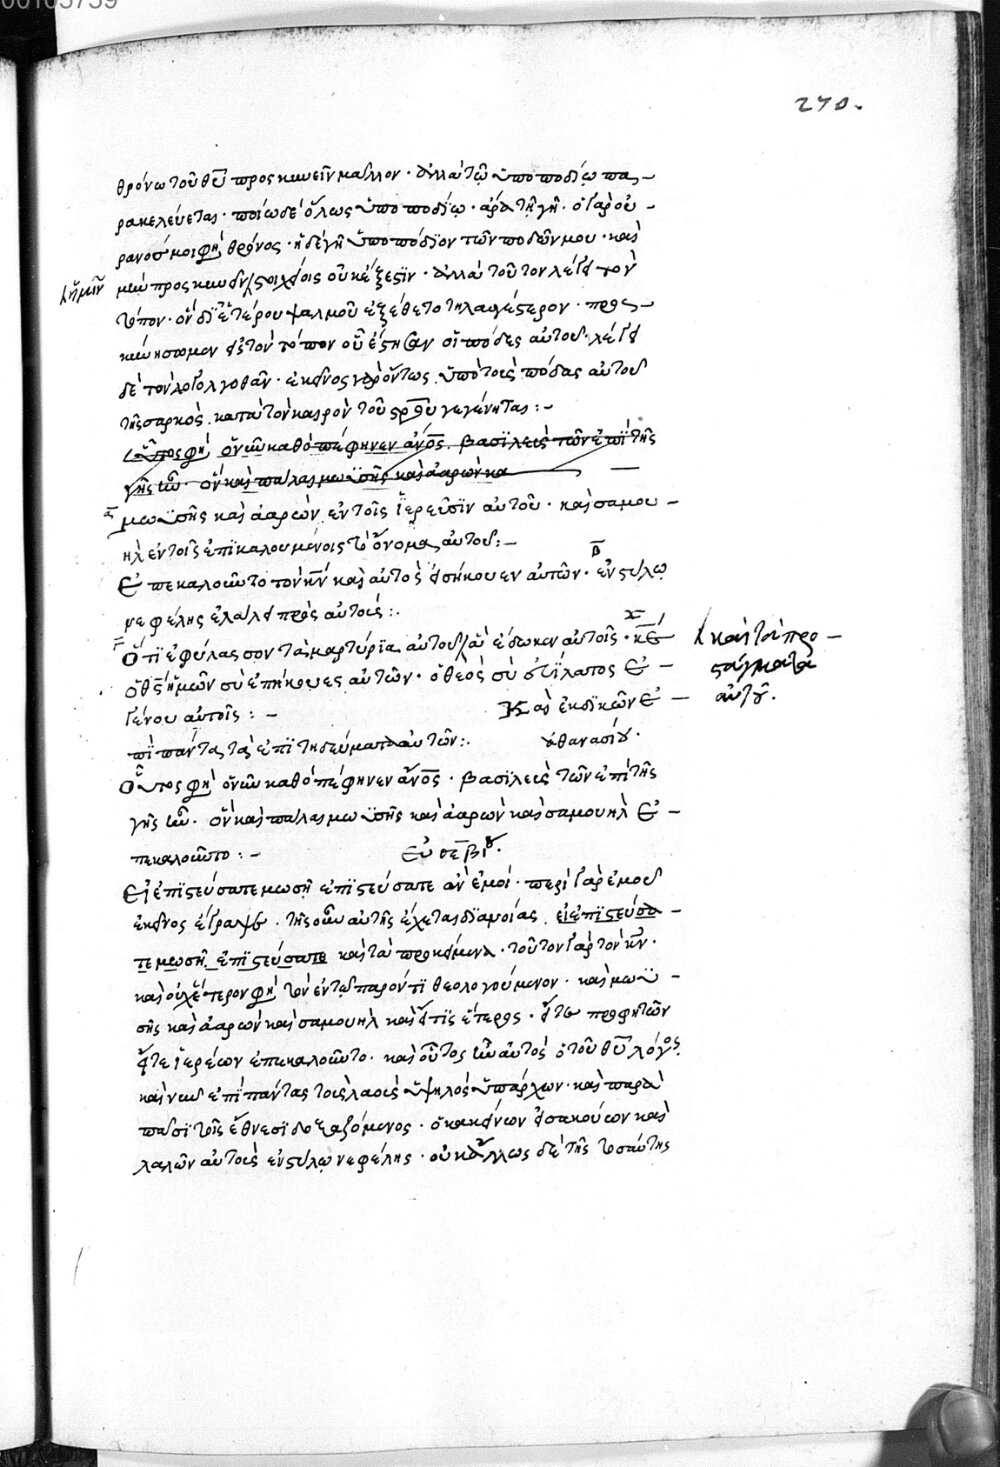 00105759
270.
θρόνω τοῦ θῦ προσκυνεῖν μαλλον · ἀλλὰ τῷ ὑποποδίῳ πα-
ρακελεύεται · ποίω δὲ ὅλως ὑποποδίῳ · ἆρα τῇ γῇ · ὁ γὰρ οὐ-
ρανός μοι φη θρόνος · ἡ δὲ γῆ ὑποπόδϊον τῶν ποδῶν μου · καὶ
ἡμῖν
μὴν προσκυνεῖν στοιχείοις οὐκ ἔξεστϊν · ἀλλὰ τοῦτον λέγει τὸν
τόπον · ὃν δϊ ἑτέρου ψαλμοῦ ἐξέθετο τηλαυγέστερον · προσ-
κυνήσωμεν εἰς τὸν τόπον οὗ ἔστησαν οἱ πόδες αὐτοῦ · λέγει
δὲ τὸν γολγοθᾶν · ἐκεῖνος γὰρ ὄντως ὑπὸ τοὺς πόδας αὐτοῦ
τῆς σαρκὸς κατὰ τὸν καιρὸν τοῦ στρου γεγένηται :-
οὗτος φη ὃν ὢν καθὸ πέφηνεν ἀνος βασϊλεὺς τῶν ἐπϊ τῆς
γῆς ὢν · ὃν καὶ πάλαι μωϋσῆς καὶ ἀαρὼν κα
α μωϋσῆς καὶ ἀαρὼν ἐν τοῖς ἱερεῦσϊν αὐτοῦ · καὶ σαμου-
ὴλ ἐν τοῖς ἐπϊκαλουμένοις τὸ ὄνομα αὐτοῦ :-
β
Ἐπεκαλοῦντο τὸν κν καὶ αὐτὸς εἰσήκουεν αὐτῶν · ἐν στύλῳ
νεφέλης ἐλάλει πρὸς αὐτούς :.
γ Ὅτϊ ἐφύλασσον τὰ μαρτύρϊα αὐτοῦ ἃ ἔδωκεν αὐτοῖς · κε
καὶ τὰ προ-
στάγματα
αὐτοῦ.
ὁ θς ἡμῶν σὺ ἐπήκουες αὐτῶν · ὁ θεὸς σὺ εὐΐλατος ἐ-
γένου αὐτοῖς :- Καὶ ἐκδικῶν ἐ-
πϊ πάντα τὰ ἐπϊτηδεύματα αὐτῶν :. ἀθανασίου.
Οὗτος φη ὃν ὢν καθὸ πέφηνεν ἀνος · βασϊλεὺς τῶν ἐπϊ τῆς
γῆς ὢν · ὃν καὶ πάλαι μωϋσῆς καὶ ἀαρὼν καὶ σαμουὴλ ἐ-
πεκαλοῦντο :- Εὐσεβίου.
Εἰ ἐπϊστεύσατε μωσῆ ἐπϊστεύσατε ἂν ἐμοί · περὶ γὰρ ἐμοῦ
ἐκεῖνος ἔγραψε · τῆς οὖν αὐτῆς ἔχεται δϊανοίας εἰ ἐπϊστεύσα-
τε μωσῆ ἐπϊστεύσατε καὶ τὰ προκείμενα · τοῦτον γὰρ τὸν κν ·
καὶ οὐχ ἕτερον φη τὸν ἐν τῷ παρόντϊ θεολογούμενον · καὶ μωϋ-
σῆς καὶ ἀαρὼν καὶ σαμουὴλ καὶ εἴ τϊς ἕτερος · εἴτε προφητῶν
εἴτε ἱερέων ἐπεκαλοῦντο · καὶ οὗτος ἦν αὐτὸς ὁ τοῦ θῦ λόγος
καὶ νῦν ἐπϊ πάντας τοὺς λαοὺς ὑψηλὸς ὑπάρχων · καὶ παρὰ
πᾶσϊ τοῖς ἔθνεσϊ δοξαζόμενος · ὁ κακείνων εἰσακούων καὶ
λαλῶν αὐτοῖς ἐν στύλῳ νεφέλης · οὐκ ἄλλως δὲ τῆς τοσαύτης